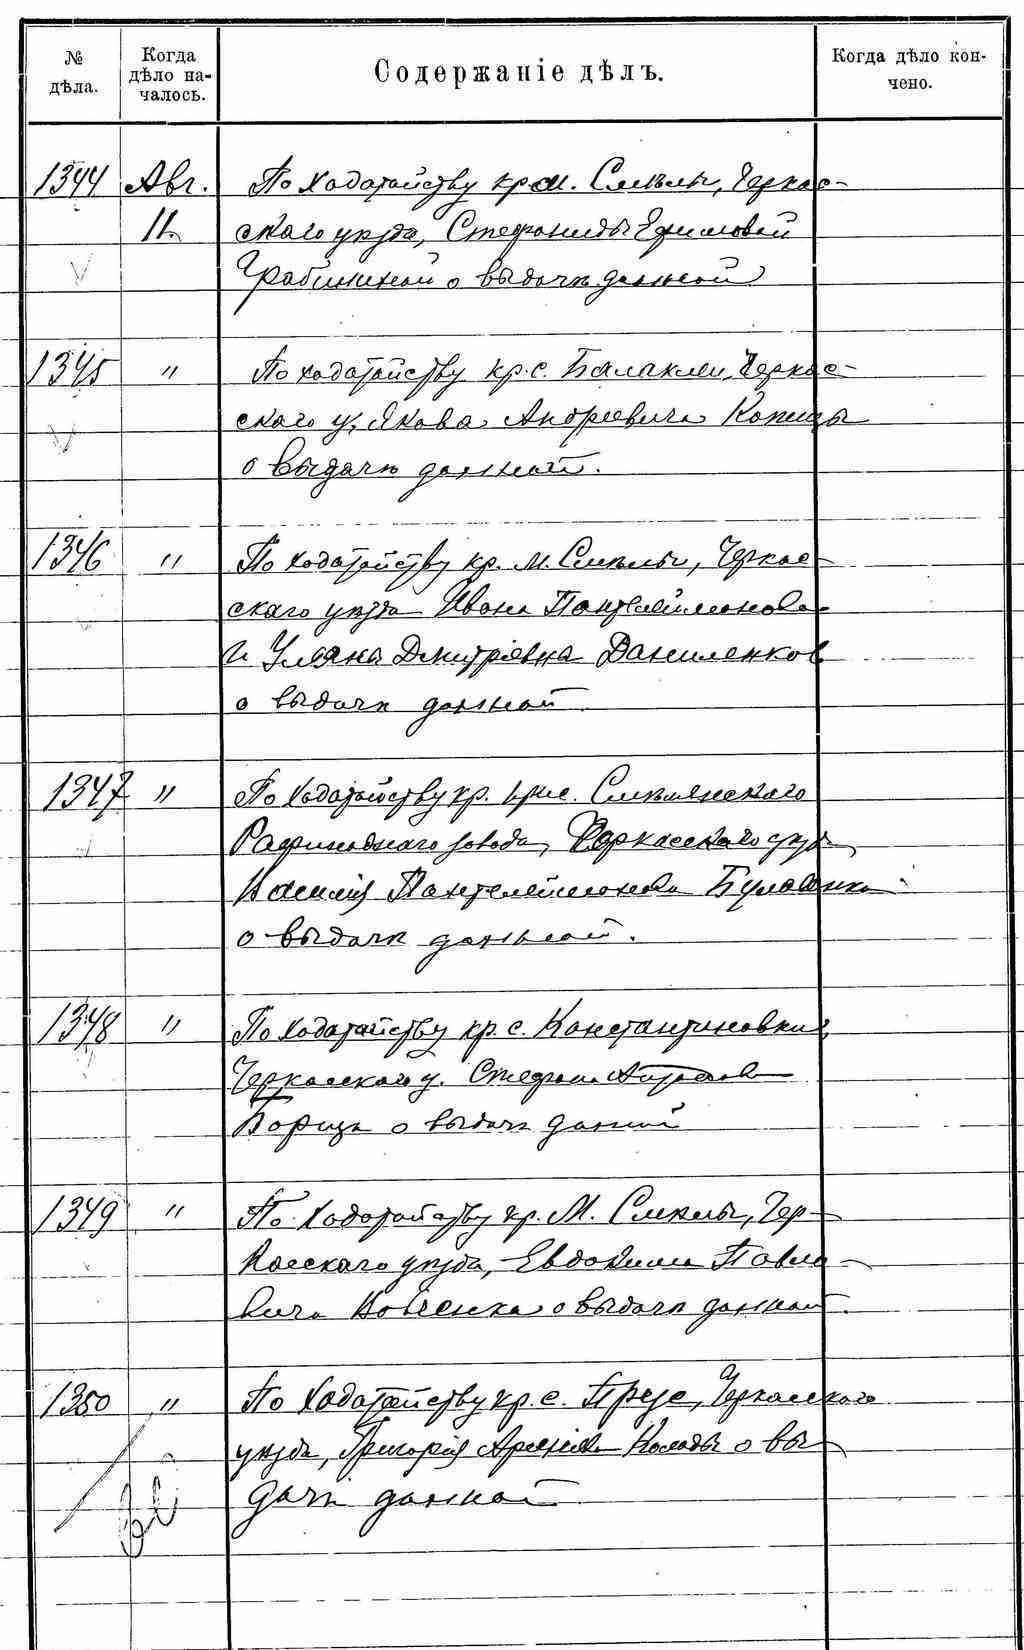 № дѣла.
Когда дѣло на-
чалось.
Содержаніе дѣлъ.
Когда дѣло кон-
чено.
1344 Авг. По ходатайству кр. м. Смѣлы, Черкас-
11. скаго уѣзда, Стефаниды Ефимовой
о выдачѣ данной
1345 " По ходатайству кр. с. Балаклеи, Черкас-
скаго у. Якова Андреевича Копицы
о выдачѣ данной.
1346 " По ходатайству кр. м. Смѣлы, Черкас-
скаго уѣзда Ивана Пантелеймонова
и Ульяны Дмитріевна Даниленков
о выдачѣ данной
1347 " По ходатайству кр. Смѣлянскаго
Рафинаднаго завода, Черкасскаго уѣзда
Василія Пантелеймонова
о выдачѣ данной.
1348 " По ходатайству кр. с. Константиновки,
Черкасскаго у. Стефана
о выдачѣ данной
1349 " По ходатайству кр. М. Смѣлы, Чер-
касскаго уѣзда, Евдокима Павло-
вича о выдачѣ данной.
1350 " По ходатайству кр. с. Прус, Черкасскаго
уѣзда, Григорія Колоды о вы-
дачѣ данной